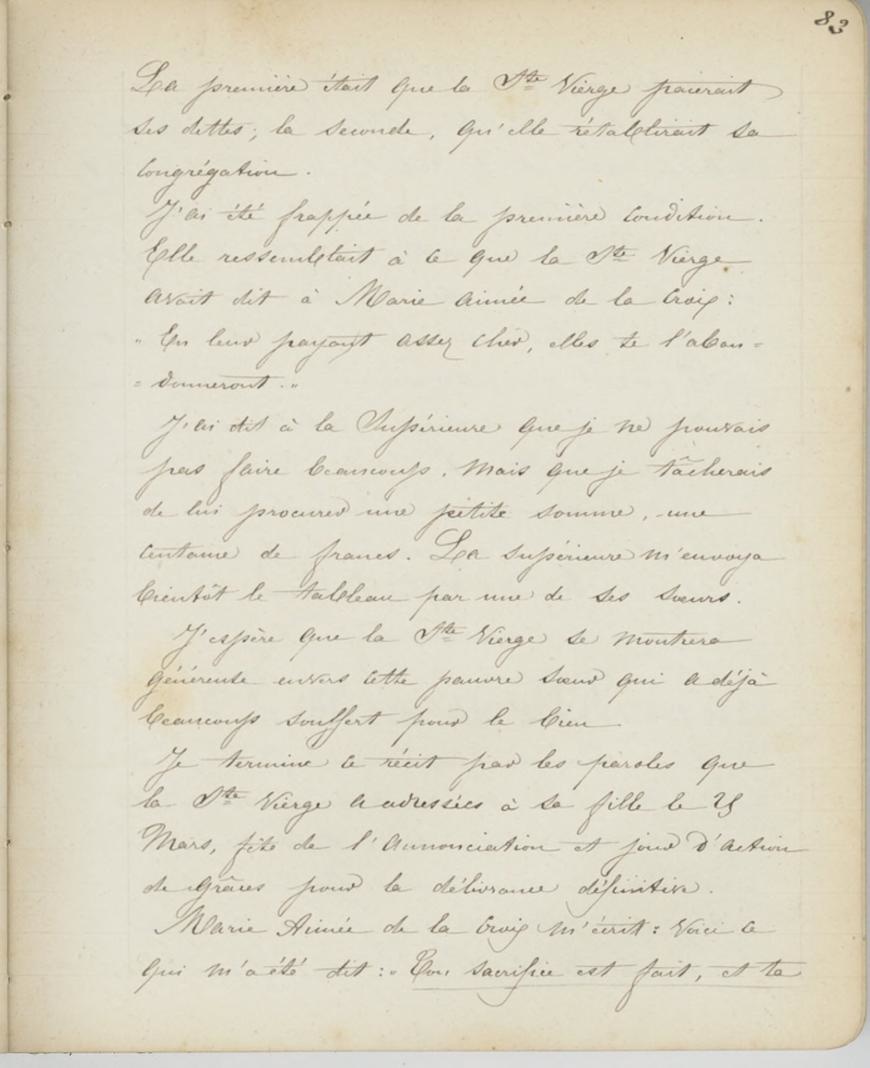 83
La première était que la Ste Vierge paierait
ses dettes; la seconde, qu'elle rétablirait sa
Congrégation.
J'ai été frappée de la première condition.
Elle ressemblait à ce que la Ste Vierge
avait dit à Marie Aimée de la Croix:
" En leur payant assez cher, elles te l'aban=
= donneront."
J'ai dit à la Supérieure que je ne pouvais
pas faire beaucoup. Mais que je tâcherais
de lui procurer une petite somme, une
centaine de francs. La supérieure m'envoya
bientôt le tableau par une de ses sœurs.
J'espère que la Ste Vierge se montrera
généreuse envers cette pauvre sœur qui a déjà
beaucoup souffert pour le bien
Je termine ce récit par les paroles que
la Ste Vierge a adressées à sa fille le 25
Mars, fête de l'Annonciation et jour d'action
de grâces pour la délivrance définitive.
Marie Aimée de la Croix m'écrit: Voici ce
qui m'a été dit: " Ton sacrifice est fait, et ta